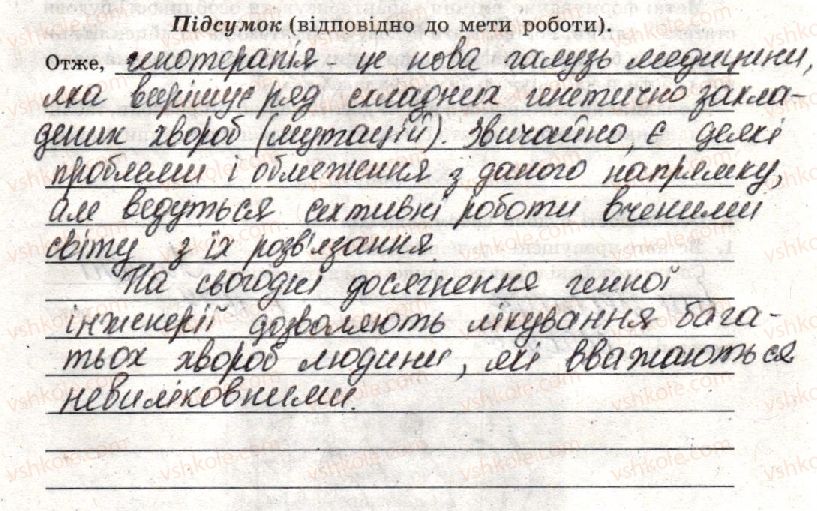 Підсумок (відповідно до мети роботи).
Отже, генотерапія - це нова галузь медицини,
яка вирішує ряд складних генетично закла-
дених хвороб (мутацій). Звичайно, є деякі
проблеми і обмеження з даного напрямку,
але ведуться активні роботи вченими
світу з їх розв'язання.
На сьогодні досягнення генної
інженерії дозволяють лікування бага-
тьох хвороб людини, які вважаються
невиліковними.